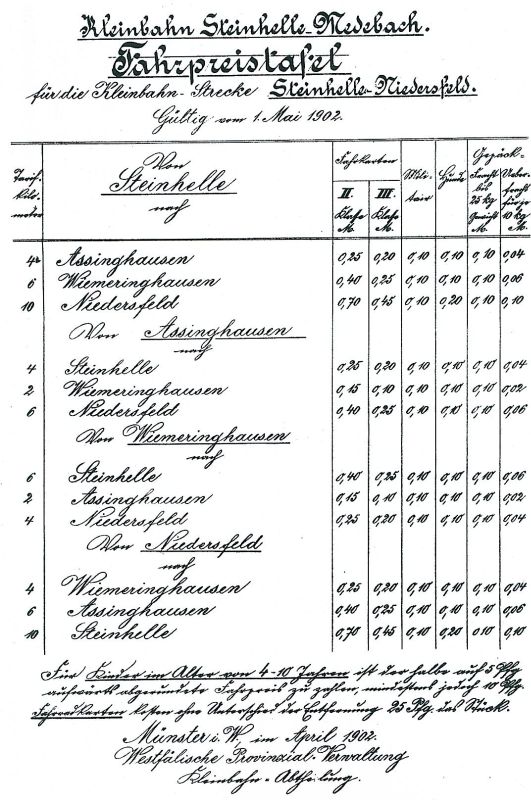 Kleinbahn Steinhelle-Medebach.
Fahrpreistafel
für die Kleinbahn-Strecke Steinhelle-Niedersfeld.
Gültig vom 1. Mai 1902.
Tarif-kilo-meter Von Steinhelle nach Fahrkarten II. Klasse M. III. Klasse M. Mili-tair Hunde Gepäck-Fracht bis 25 kg Gewicht M. Ueber-fracht für je 10 kg M.
4 Assinghausen 0,25 0,20 0,10 0,10 0,10 0,04
6 Wiemeringhausen 0,40 0,25 0,10 0,10 0,10 0,06
10 Niedersfeld 0,70 0,45 0,10 0,20 0,10 0,10
Von Assinghausen
nach
4 Steinhelle 0,25 0,20 0,10 0,10 0,10 0,04
2 Wiemeringhausen 0,15 0,10 0,10 0,10 0,10 0,02
6 Niedersfeld 0,40 0,25 0,10 0,10 0,10 0,06
Von Wiemeringhausen
nach
6 Steinhelle 0,40 0,25 0,10 0,10 0,10 0,06
2 Assinghausen 0,15 0,10 0,10 0,10 0,10 0,02
4 Niedersfeld 0,25 0,20 0,10 0,10 0,10 0,04
Von Niedersfeld
nach
4 Wiemeringhausen 0,25 0,20 0,10 0,10 0,10 0,04
6 Assinghausen 0,40 0,25 0,10 0,10 0,10 0,06
10 Steinhelle 0,70 0,45 0,10 0,20 010 0,10
Für Kinder im Alter von 4-10 Jahren ist der halbe auf 5 Pfg
aufwärts abgerundete Fahrpreis zu zahlen, mindestens jedoch 10 Pfg
Fahrradkarten kosten ohne Unterschied der Entfernung 25 Pfg. das Stück.
Münster i. W. im April 1902.
Westfälische Provinzial-Verwaltung
Kleinbahn-Abtheilung.